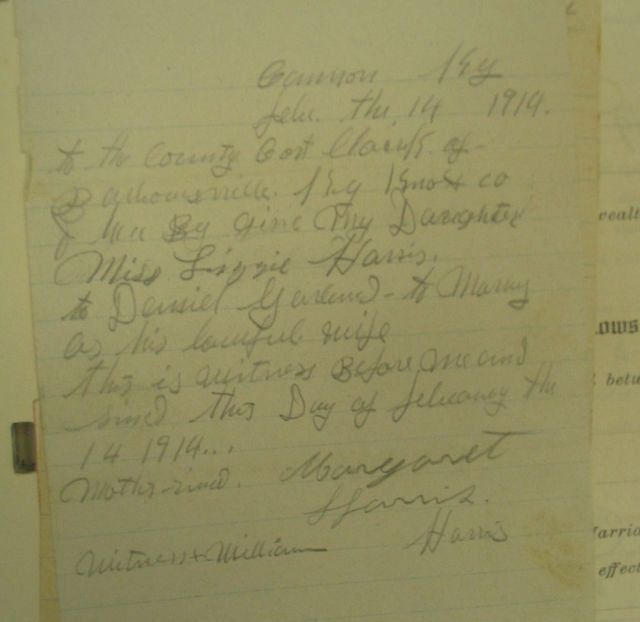 Cannon Ky
Feb. the 14 1914.
to the County Cort Clark of
Barbourville. Ky Knox co
I hear By Give My Daughter
Miss Lizzie Harris.
to Daniel Garland - to Marry
as his lawful wife
this is witness Before me and
sined this Day of February the
14 1914...
Mother sined. Margaret
Harris.
Witness William Harris
wealt
ows
betw
Marria
effect